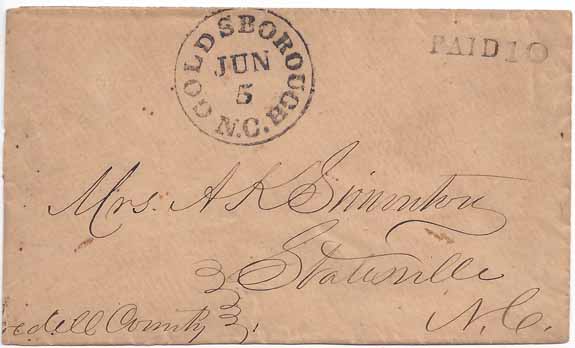 GOLDSBOROUGH N.C.
JUN
5
PAID 10
Mrs. A K Simonton
Statesville
N.C.
edell County